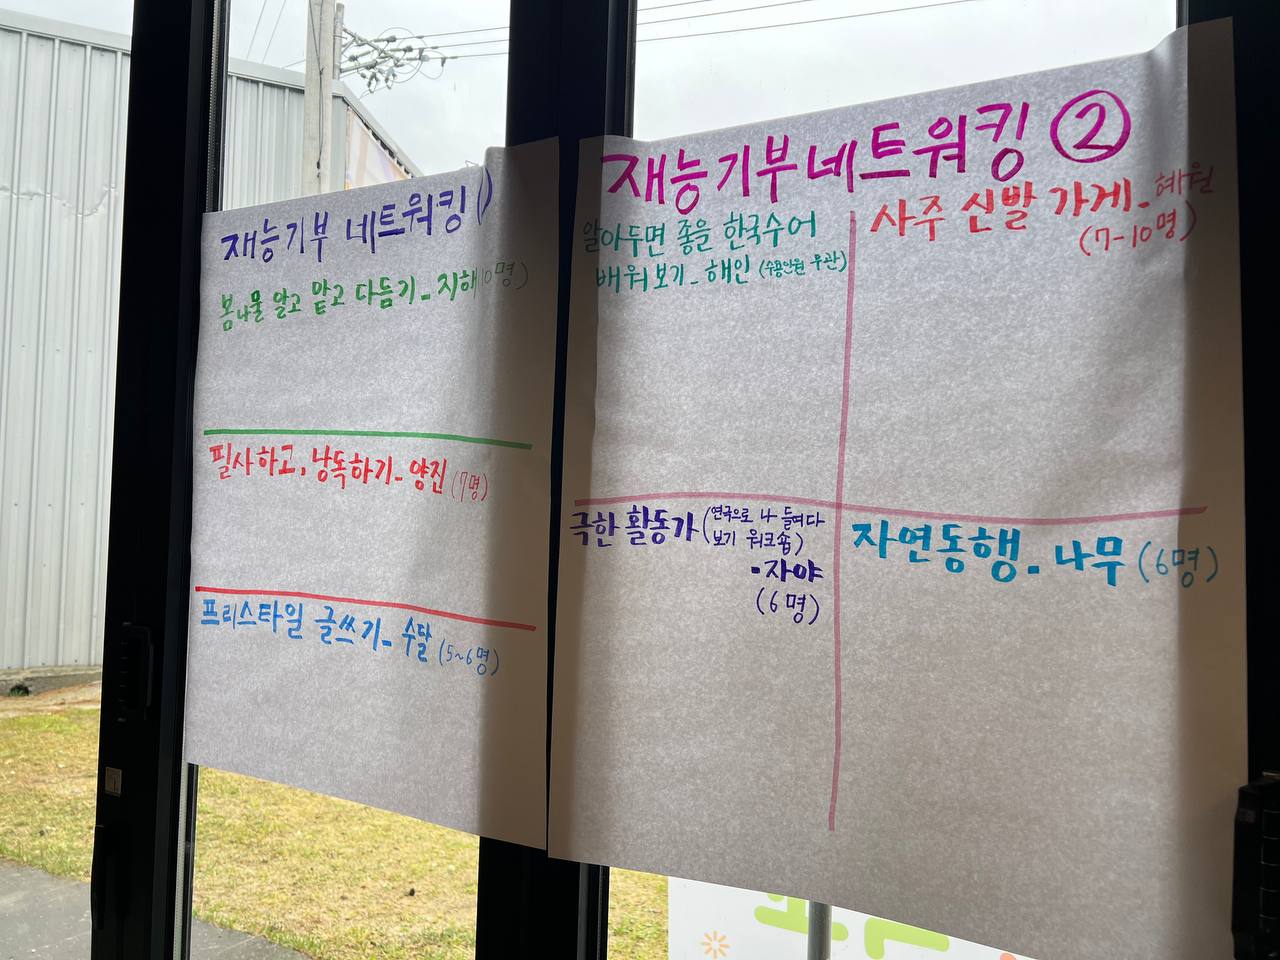 재능기부 네트워킹
봄나물 알고 맡고 다듬기 - 지해
필사하고, 낭독하기 - 양진 (7명)
프리스타일 글쓰기 - 수달 (5~6명)
재능기부네트워킹 ②
알아두면 좋을 한국수어
배워보기 - 해인 (수용인원 무관)
사주 신발 가게 - 혜원
(7-10명)
극한 활동가 (연극으로 나 들여다
보기 워크숍)
- 자야
(6명)
자연동행 - 나무 (6명)